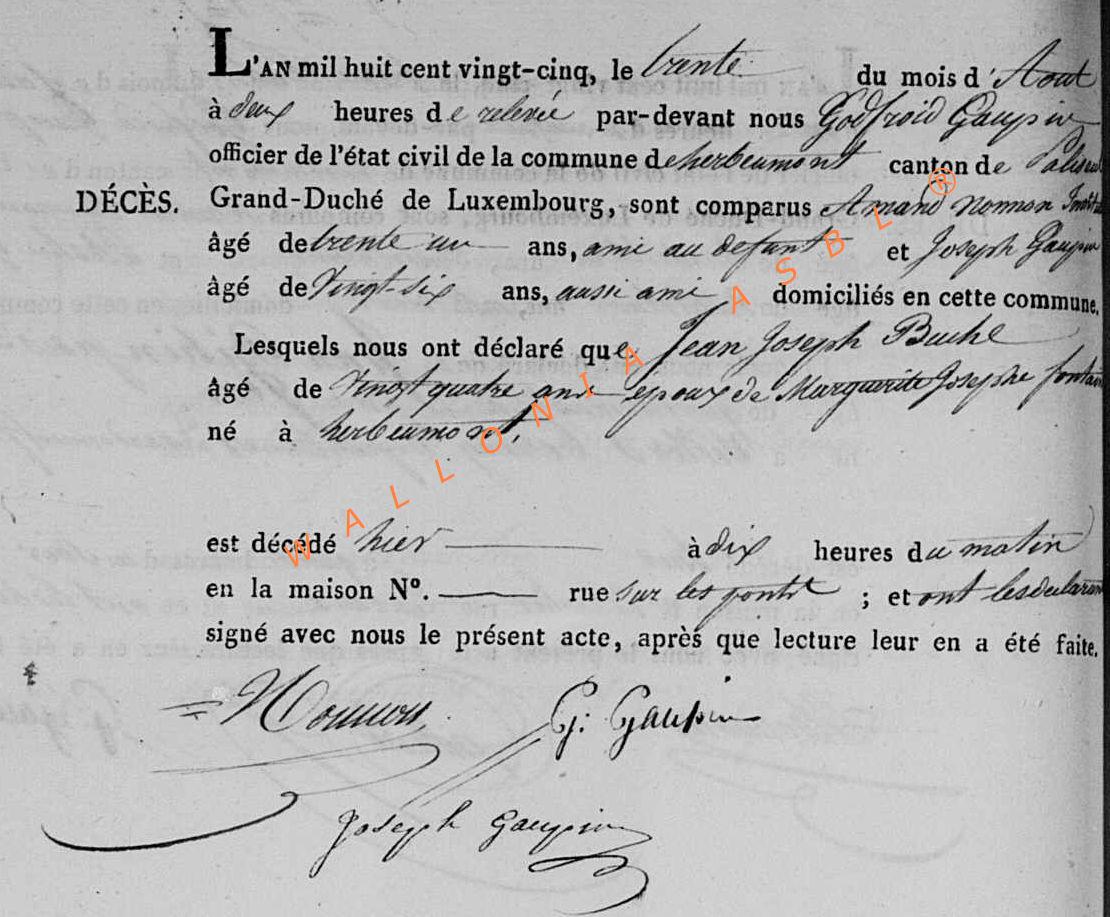 L'AN mil huit cent vingt-cinq, le trente du mois d'Aout
à deux heures de relevée par-devant nous Godfroid Gaupin
officier de l'état civil de la commune de herbeumont canton de Paliseul
DÉCÈS. Grand-Duché de Luxembourg, sont comparus Amand Nonnon
âgé de trente un ans, ami au defunt et Joseph Gaupin
âgé de Vingt-six ans, aussi ami domiciliés en cette commune.
Lesquels nous ont déclaré que Jean Joseph Buche
âgé de Vingt quatre ans epoux de Marguerite Josephe fontaine
né à herbeumont.
est décédé hier à dix heures du matin
en la maison N°. rue sur les ; et ont les declarans
signé avec nous le présent acte, après que lecture leur en a été faite.
Nonnon G. Gaupin
Joseph Gaupin
WALLONIA ASBL ®